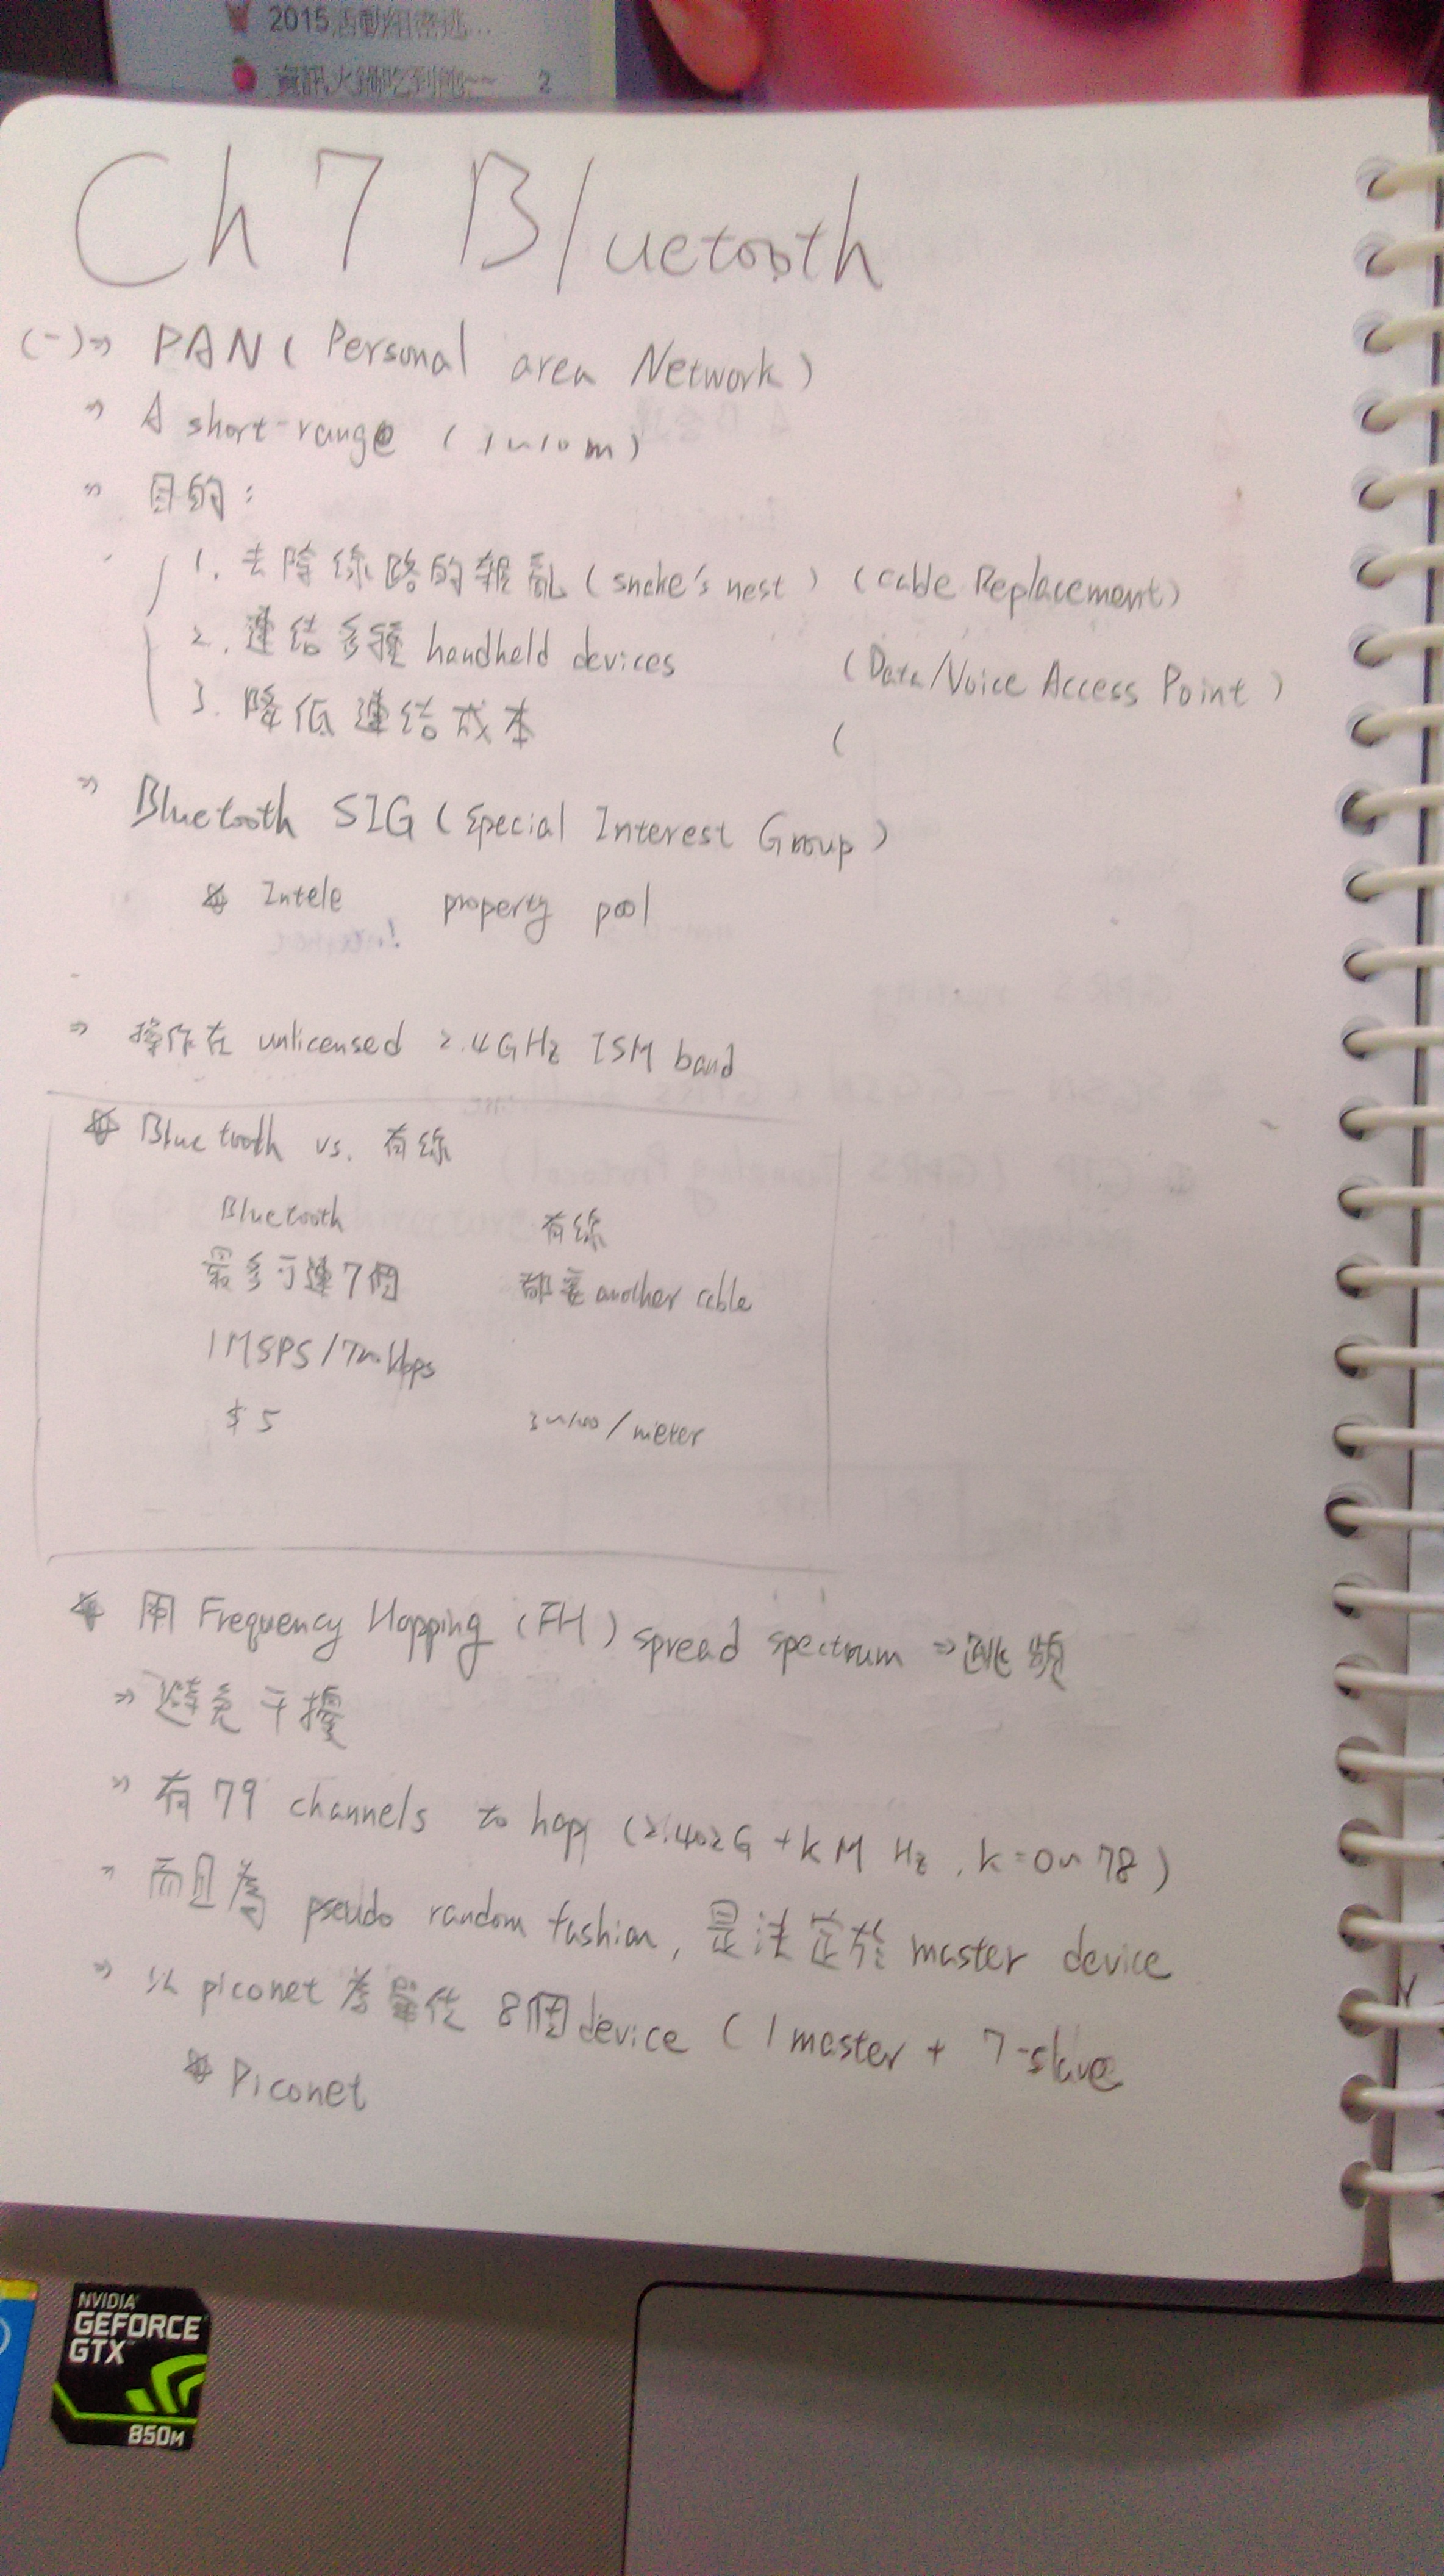 2015活動組密逃...
資訊火鍋吃到飽~~ 2
Ch 7 Bluetooth
(一)⇒ PAN ( Personal area Network )
⇒ A short-range ( 1~10m )
⇒ 目的:
1. 去除線路的報亂 ( snake's nest ) ( Cable Replacement )
2. 連結多種 handheld devices ( Data/Voice Access Point )
3. 降低連結成本 (
⇒ Bluetooth SIG ( Special Interest Group )
* Intele property pool
⇒ 操作在 unlicensed 2.4GHz ISM band
* Bluetooth vs. 有線
Bluetooth 有線
最多可連7個 都要 another cable
1 MSPS / 720 kbps
$ 5 3~100 / meter
* 用 Frequency Hopping ( FH ) spread spectrum ⇒ 跳頻
⇒ 避免干擾
⇒ 有 79 channels to hop ( 2.402G + k M Hz , k = 0~78 )
⇒ 而且為 pseudo random fashion, 是決定於 master device
⇒ 以 piconet 為單位 8個device ( 1 master + 7-slave
* Piconet
NVIDIA
GEFORCE
GTX
850M